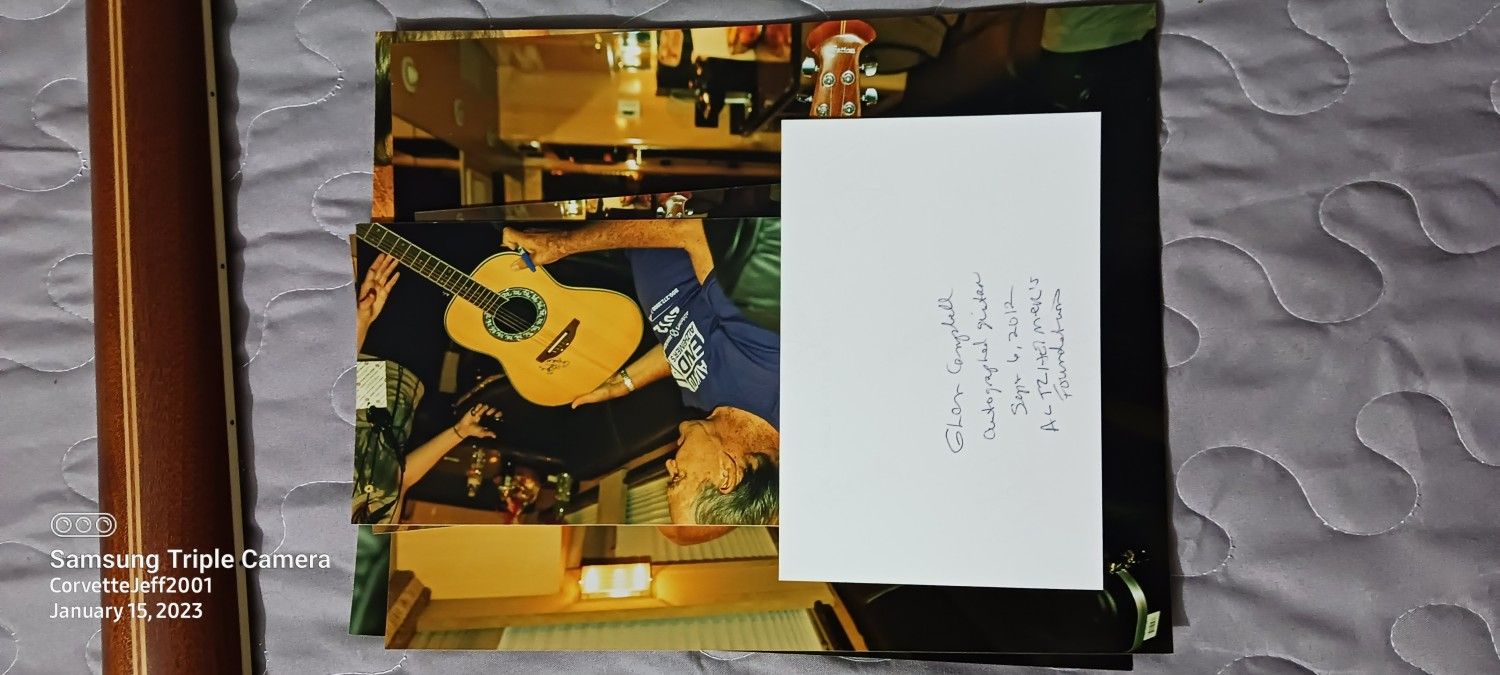 Ovation
Glen Campbell
autographed guitar
Sept 6, 2012
ALTZHEIMER'S
Foundation
Samsung Triple Camera
CorvetteJeff2001
January 15, 2023